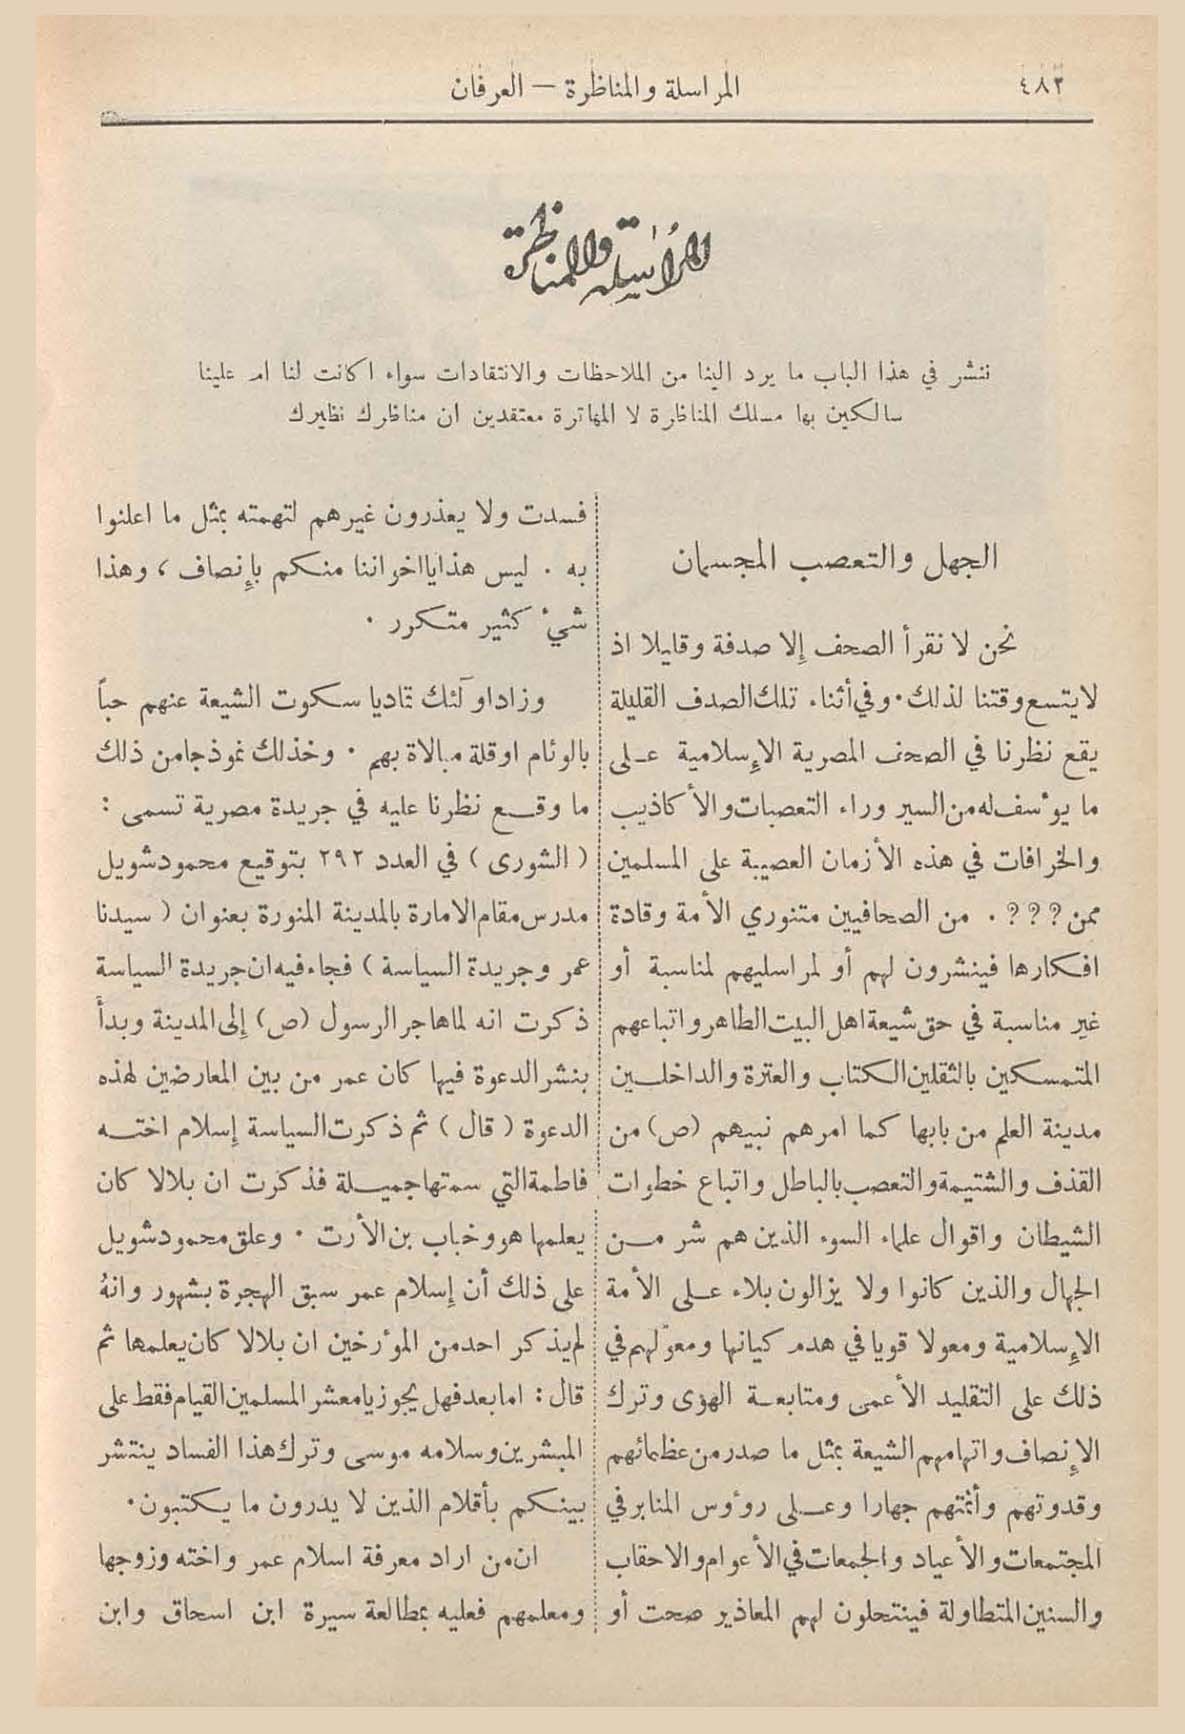 ٤٨٢
المراسلة والمناظرة — العرفان
المراسلة والمناظرة
ننشر في هذا الباب ما يرد الينا من الملاحظات والانتقادات سواء اكانت لنا ام علينا
سالكين بها مسلك المناظرة لا المهاترة معتقدين ان مناظرك نظيرك
الجهل والتعصب المجسمان
نحن لا نقرأ الصحف إلا صدفة وقليلا اذ
لا يتسع وقتنا لذلك . وفي أثناء تلك الصدف القليلة
يقع نظرنا في الصحف المصرية الإسلامية على
ما يؤسف له من السير وراء التعصبات والأكاذيب
والخرافات في هذه الأزمان العصيبة على المسلمين
ممن ؟؟؟ . من الصحافيين متنوري الأمة وقادة
افكارها فينشرون لهم أو لمراسليهم لمناسبة أو
غير مناسبة في حق شيعة اهل البيت الطاهر واتباعهم
المتمسكين بالثقلين الكتاب والعترة والداخلين
مدينة العلم من بابها كما امرهم نبيهم (ص) من
القذف والشتيمة والتعصب بالباطل واتباع خطوات
الشيطان واقوال علماء السوء الذين هم شر من
الجهال والذين كانوا ولا يزالون بلاء على الأمة
الإسلامية ومعولا قويا في هدم كيانها ومعوّلهم في
ذلك على التقليد الأعمى ومتابعة الهوى وترك
الإنصاف واتهامهم الشيعة بمثل ما صدر من عظمائهم
وقدوتهم وأئمتهم جهارا وعلى رؤوس المنابر في
المجتمعات والأعياد والجمعات في الأعوام والاحقاب
والسنين المتطاولة فينتحلون لهم المعاذير صحت أو
فسدت ولا يعذرون غيرهم لتهمته بمثل ما اعلنوا
به . ليس هذا يا اخواننا منكم بإنصاف ، وهذا
شيء كثير متكرر .
وزاد اولئك تماديا سكوت الشيعة عنهم حباً
بالوئام او قلة مبالاة بهم . وخذ لك نموذجا من ذلك
ما وقع نظرنا عليه في جريدة مصرية تسمى :
( الشورى ) في العدد ٢٩٢ بتوقيع محمود شويل
مدرس مقام الامارة بالمدينة المنورة بعنوان ( سيدنا
عمر وجريدة السياسة ) فجاء فيه ان جريدة السياسة
ذكرت انه لما هاجر الرسول (ص) إلى المدينة وبدأ
بنشر الدعوة فيها كان عمر من بين المعارضين لهذه
الدعوة ( قال ) ثم ذكرت السياسة إسلام اخته
فاطمة التي سمتها جميلة فذكرت ان بلالا كان
يعلمها هو وخباب بن الأرت . وعلق محمود شويل
على ذلك أن إسلام عمر سبق الهجرة بشهور وانه
لم يذكر احد من المؤرخين ان بلالا كان يعلمها ثم
قال : اما بعد فهل يجوز يا معشر المسلمين القيام فقط على
المبشرين وسلامه موسى وترك هذا الفساد ينتشر
بينكم بأقلام الذين لا يدرون ما يكتبون .
ان من اراد معرفة اسلام عمر واخته وزوجها
ومعلمهم فعليه بمطالعة سيرة ابن اسحاق وابن